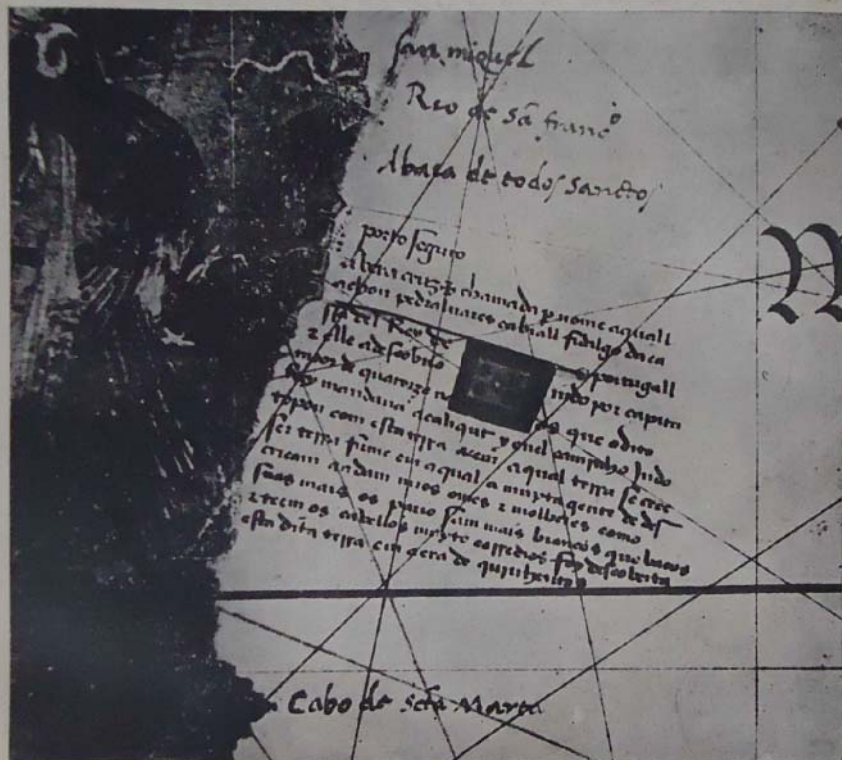 san miguel
Rio de sã franc°
Abaia de todos sanctos
porto seguro
a vera cruz + chamada p nome aquall
achou pedralvares cabrall fidalgo da ca
ssa del Rey de portugall
z elle a descobrio indo por capita
moor de quatorze na os que o dito
Rey mandaua a caliqut y enel caminho indo
topou com esta terra aqual terra se cree
ser terra firme em aqual a muyta gente de des
cricam andam nuos omes z molheres como
suas mais os pario sam mais brancos que bacos
z teem os cabellos muyto corredios foy descoberta
esta dita terra em aera de quinhentos
Cabo de scta Marta